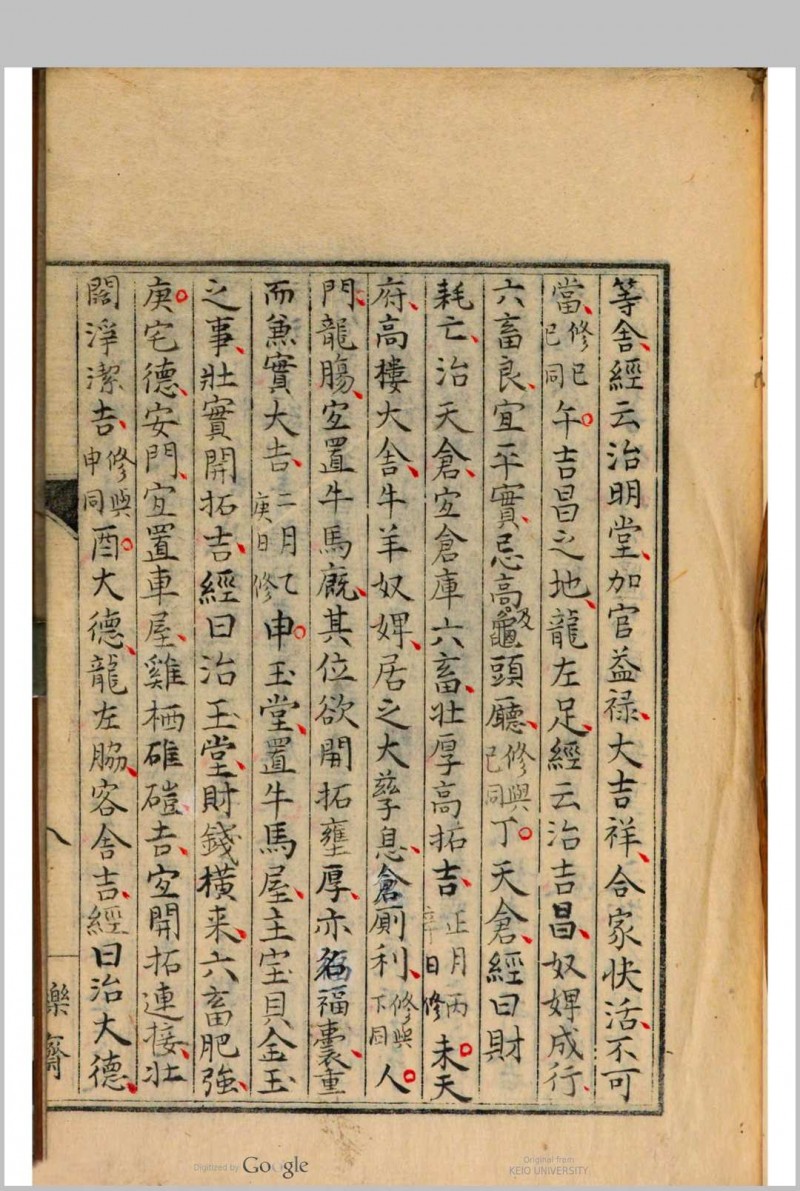 等舍、經云治明堂、加官益禄、大吉祥、合家快活、不可
當、修巳巳同午。吉昌之地、龍左足、經云治吉昌、奴婢成行、
六畜良、宜平實、忌高及龜頭廳、修與巳同丁。天倉、經曰財
耗亡、治天倉、宜倉庫六畜、壮厚高拓吉、正月丙辛日修未。天
府、高樓大舍、牛羊奴婢、居之大孳息、倉厠利、修與下同人。
門、龍腸、宜置牛馬廐、其位欲開拓壅厚、亦名福囊、重
而兼實大吉、二月乙庚日修申。玉堂、置牛馬屋、主宝貝金玉
之事、壮實開拓吉、經曰治玉堂、財錢横来、六畜肥強、
庚。宅德、安門、宜置車屋、雞栖碓磑吉、宜開拓連接、壮
闊淨潔吉、修與申同酉。大德、龍左脇、客舍吉、經曰治大德、
八
樂齋
Digitized by Google
Original from
KEIO UNIVERSITY